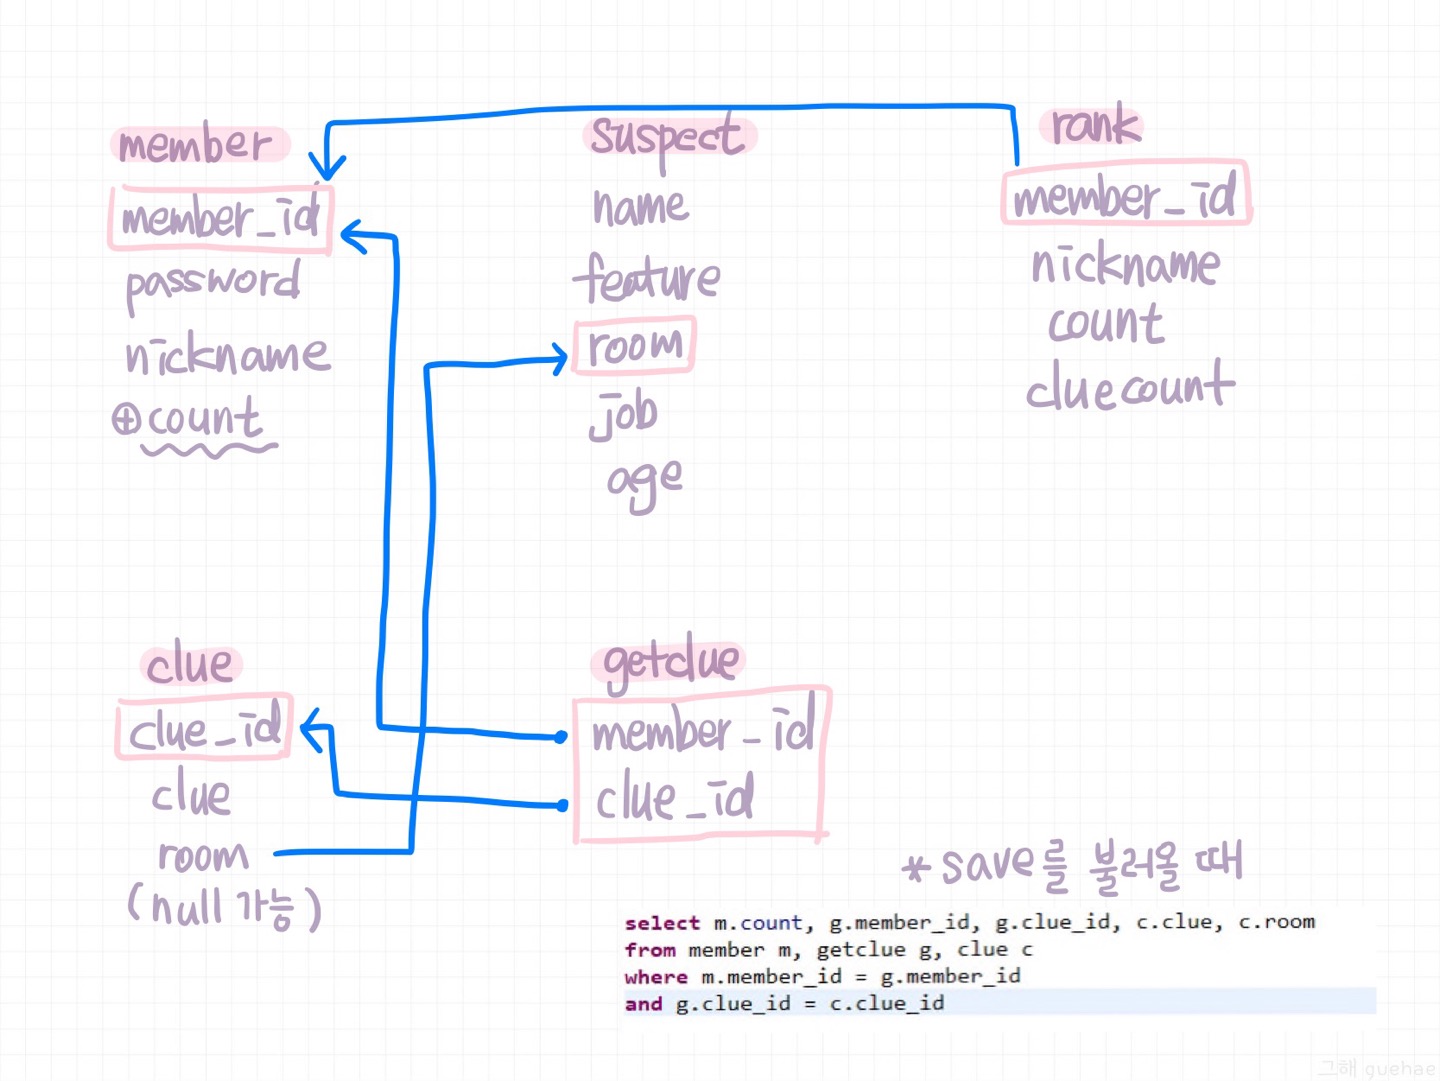 member
member_id
password
nickname
⊕count
suspect
name
feature
room
job
age
rank
member_id
nickname
count
cluecount
clue
clue_id
clue
room
(null 가능)
getclue
member_id
clue_id
*save를 불러올 때
select m.count, g.member_id, g.clue_id, c.clue, c.room
from member m, getclue g, clue c
where m.member_id = g.member_id
and g.clue_id = c.clue_id
그해 guehae